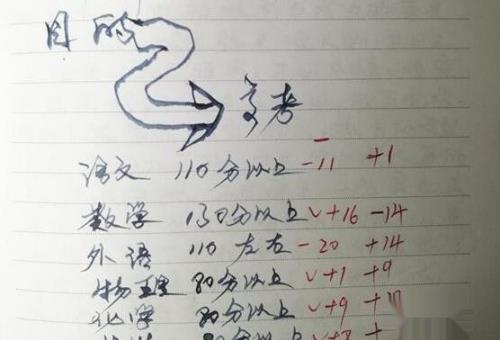 目的
高考
语文 110分以上 -11 +1
数学 130分以上 √+16 -14
外语 110左右 -20 +14
物理 80分以上 √+1 +9
化学 80分以上 √+9